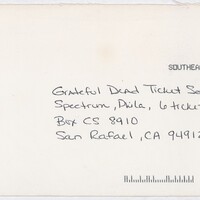 SOUTHEA
Grateful Dead Ticket Sa
Spectrum, Phila, 6 ticke
Box CS 8910
San Rafael, CA 9491